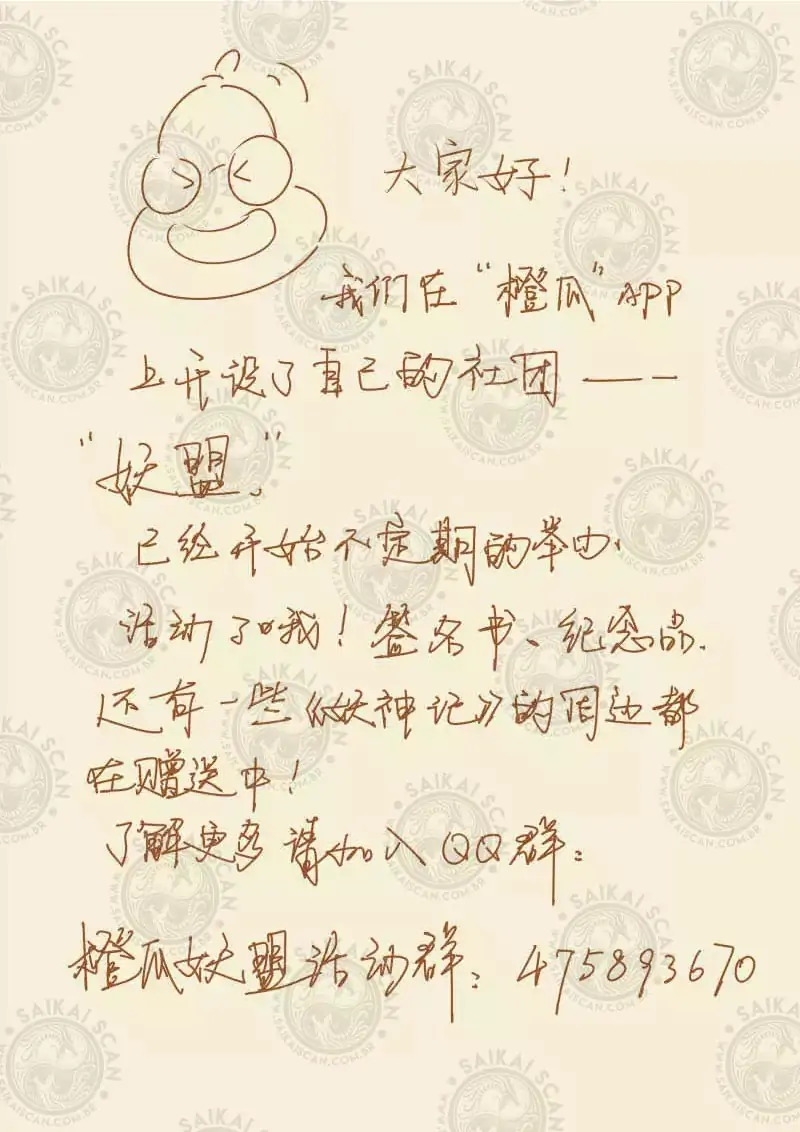 大家好!
我们在“橙瓜”APP
上开设了自己的社团——
“妖盟”、
已经开始不定期的举办、
活动了哦!签名书、纪念品.
还有一些《妖神记》的周边都
在赠送中!
了解更多请加入QQ群:
橙瓜妖盟活动群:475893670
SAIKAI SCAN
WWW.SAIKAISCAN.COM.BR